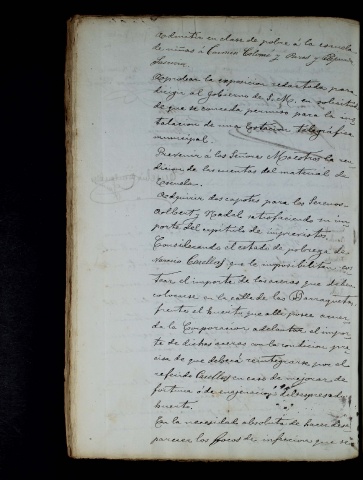 Admitir en clase de pobre á la escuela
de niñas á Carmen Colomé y Rosa y
Aprobar la exposicion redactada para
dirigir al Gobierno de S. M. en solicitud
de que se conceda permiso para la ins
talacion de una Estacion telegráfica
municipal.
Prevenir á los Señores Maestros la ren
dicion de las cuentas del material de
Escuela.
Adquirir dos capotes para los Serenos
Aalbert y Nadal satisfaciendo su im
porte del capítulo de imprevistos.
Considerando el estado de pobreza de
Casellas que le imposibilita cos
tear el importe de las aceras que debe
colocarse en la calle de las Barraquetas,
frente el huerto que allí posee acuer
da la Corporacion adelantar el impor
te de dichas aceras con la condicion pre
cisa de que deberá reintegrarse por el
referido Casellas en caso de mejorar de
fortuna ó de enagenacion del espresado
huerto.
En la necesidad absoluta de hacer desa
parecer los focos de infeccion que se